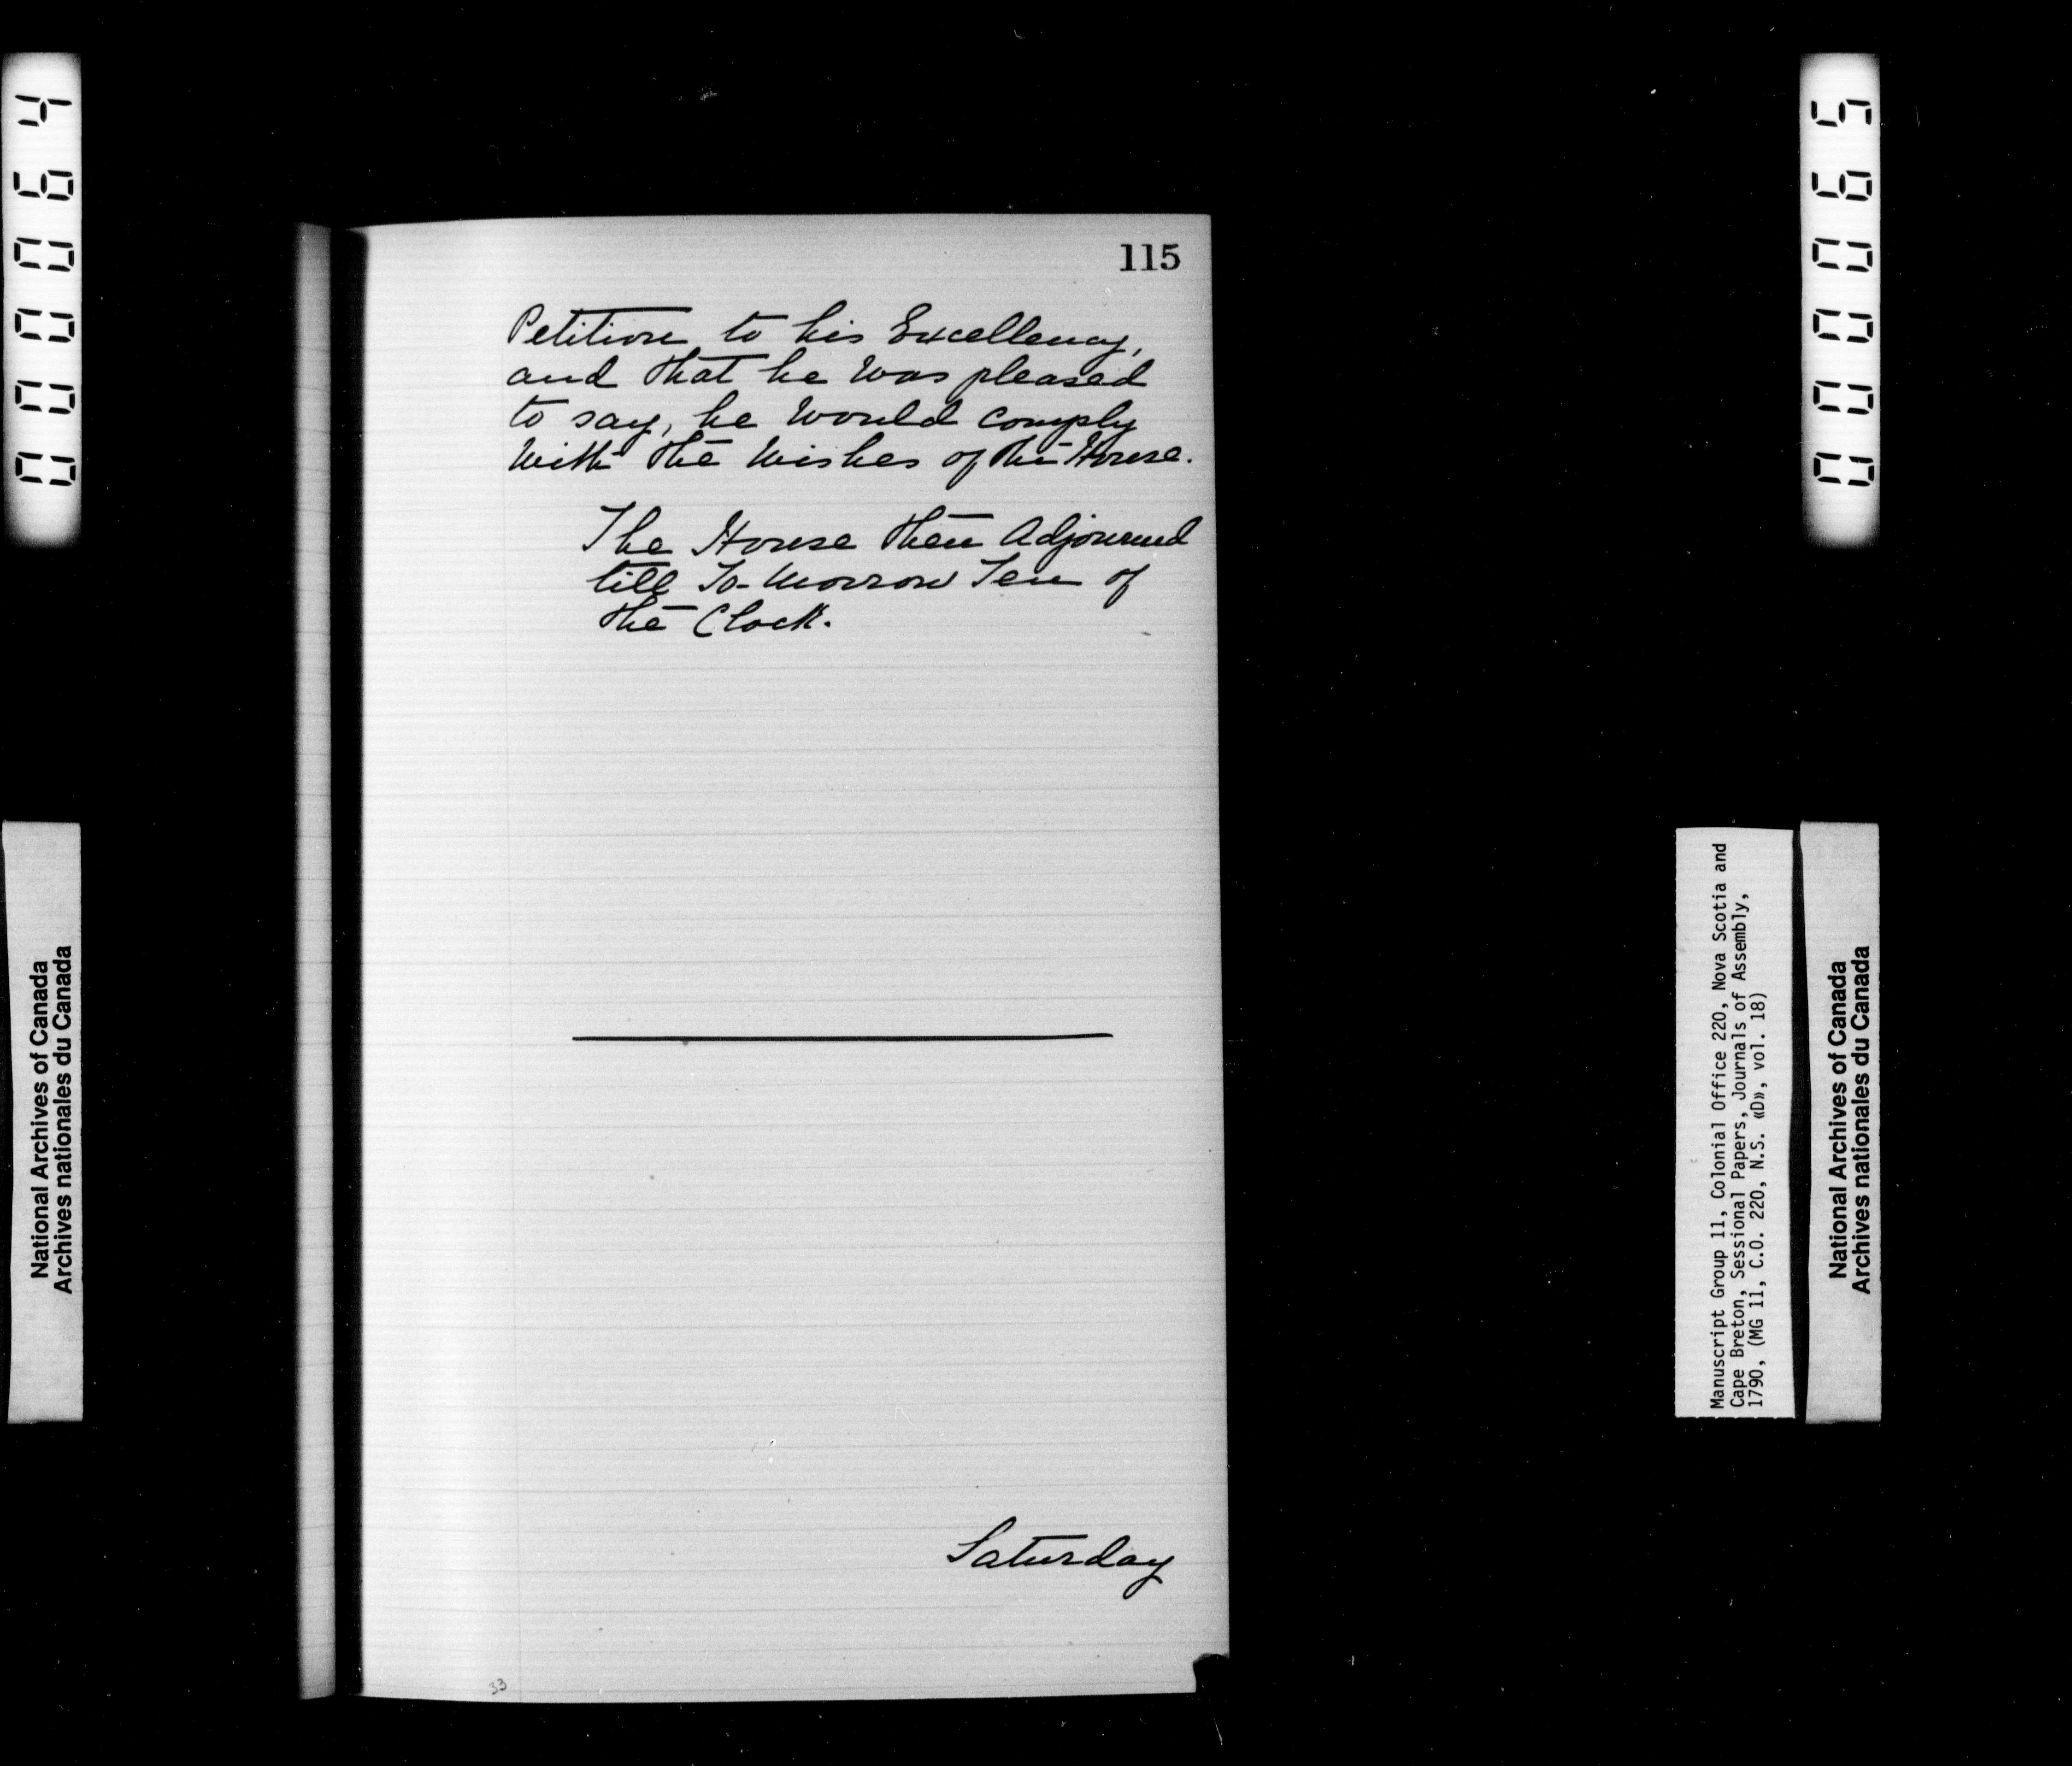 000064
National Archives of Canada
Archives nationales du Canada
115
Petition to his Excellency,
and that he was pleased
to say, he would comply
with the wishes of the House.
The House then Adjourned
till To-morrow Ten of
the Clock.
Saturday
33
000065
Manuscript Group 11, Colonial Office 220, Nova Scotia and
Cape Breton, Sessional Papers, Journals of Assembly,
1790, (MG 11, C.O. 220, N.S. «D», vol. 18)
National Archives of Canada
Archives nationales du Canada